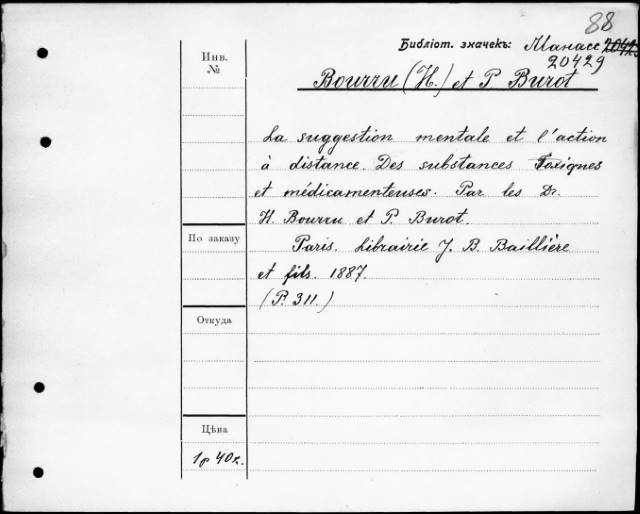 88
Библіот. значекъ: Манасе 20425
20429
Инв.
№
Bourru (H.) et P. Burot
La suggestion mentale et l'action
à distance. Des substances Toxiques
et médicamenteuses. Par les Dr.
H. Bourru et P. Burot.
По заказу
Paris. Librairie J. B. Baillière
et fils. 1887.
(P. 311.)
Откуда
Цѣна
1р 40к.